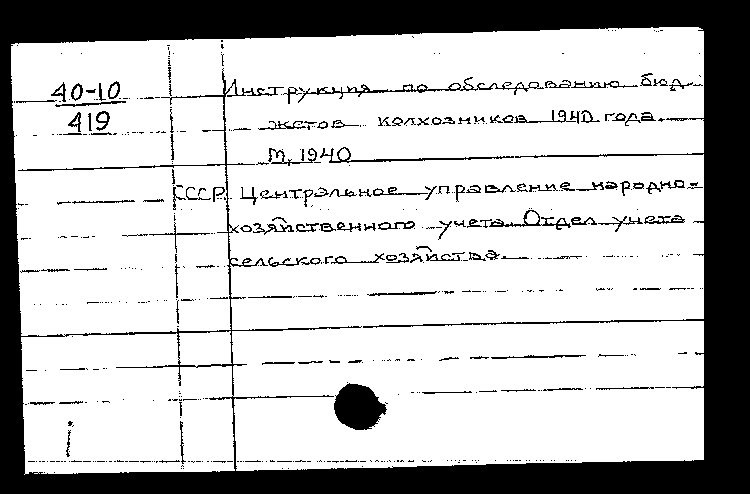 40-10 Инструкция по обследованию бюд-
419 жетов колхозников 1940 года.
М, 1940
СССР. Центральное управление народно-
хозяйственного учета. Отдел учета
сельского хозяйства.
i